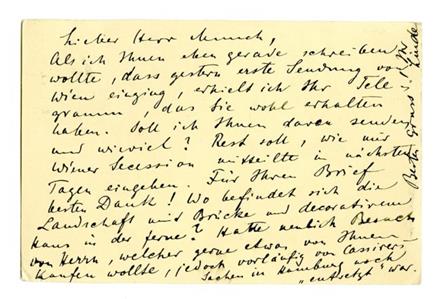 Lieber Herr Munch,
Als ich Ihnen eben gerade schreiben
wollte, dass gestern erste Sendung von
Wien einging, erhielt ich Ihr Tele
gramm, das Sie wohl erhalten
haben. Soll ich Ihnen davon senden
und wieviel? Rest soll, wie mir
Wiener Secession mitteilte in nächsten
Tagen eingehen. Für Ihren Brief
besten Dank! Wo befindet sich die
Landschaft mit Brücke und decorativem
Haus in der Ferne? Hatte neulich Besuch
von Herrn, welcher gerne etwas von Ihnen
kaufen wollte, jedoch vorläufig von Cassirers
Sachen in Hamburg noch
"entsetzt" war.
Besten Gruss s. Ihr
Linde